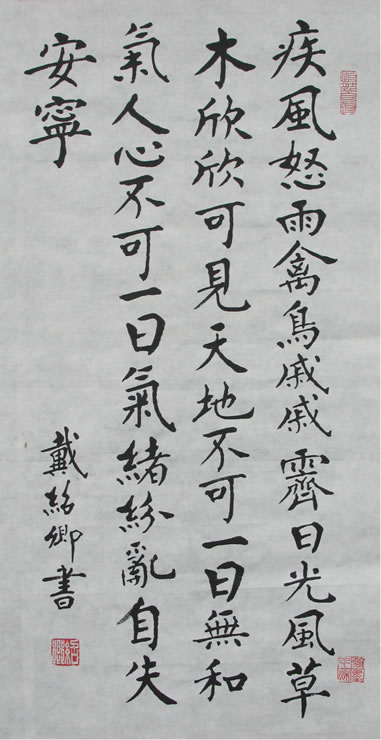 疾風怒雨禽鳥戚戚霽日光風草
木欣欣可見天地不可一日無和
氣人心不可一日氣緒紛亂自失
安寧
戴紹卿書